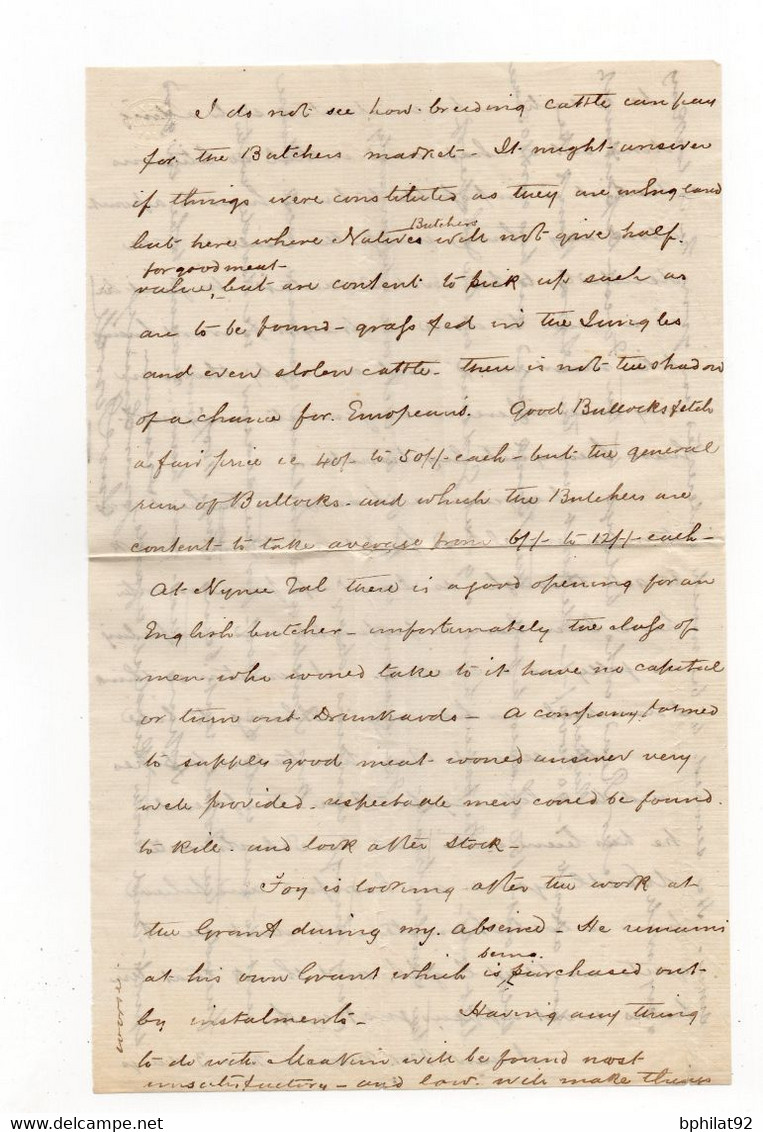 I do not see how breeding cattle can pay
for the Butchers market - It might answer
if things were constituted as they are in England
Butchers
but here where Natives will not give half
for good meat
value, but are content to pick up such as
are to be found - grass fed in the Jungles
and even stolen cattle - there is not the shadow
of a chance for Europeans. Good Bullocks fetch
a fair price ie 40/- to 50/- each - but the general
run of Bullocks - and which the Butchers are
content to take average from 6/- to 12/- each -
At Nynee Tal there is a good opening for an
English butcher - unfortunately the class of
men who woned take to it have no capital
or turn out Drunkards - A company formed
to supply good meat woned answer very
well provided respectable men coned be found
to kill and look after stock -
Foy is looking after the work at
the Grant during my absence - He remains
being
at his own Grant which is purchased out
by instalments - Having any thing
to do with will be found most
unsatisfactory - and law will make things
worse.
bphilat92